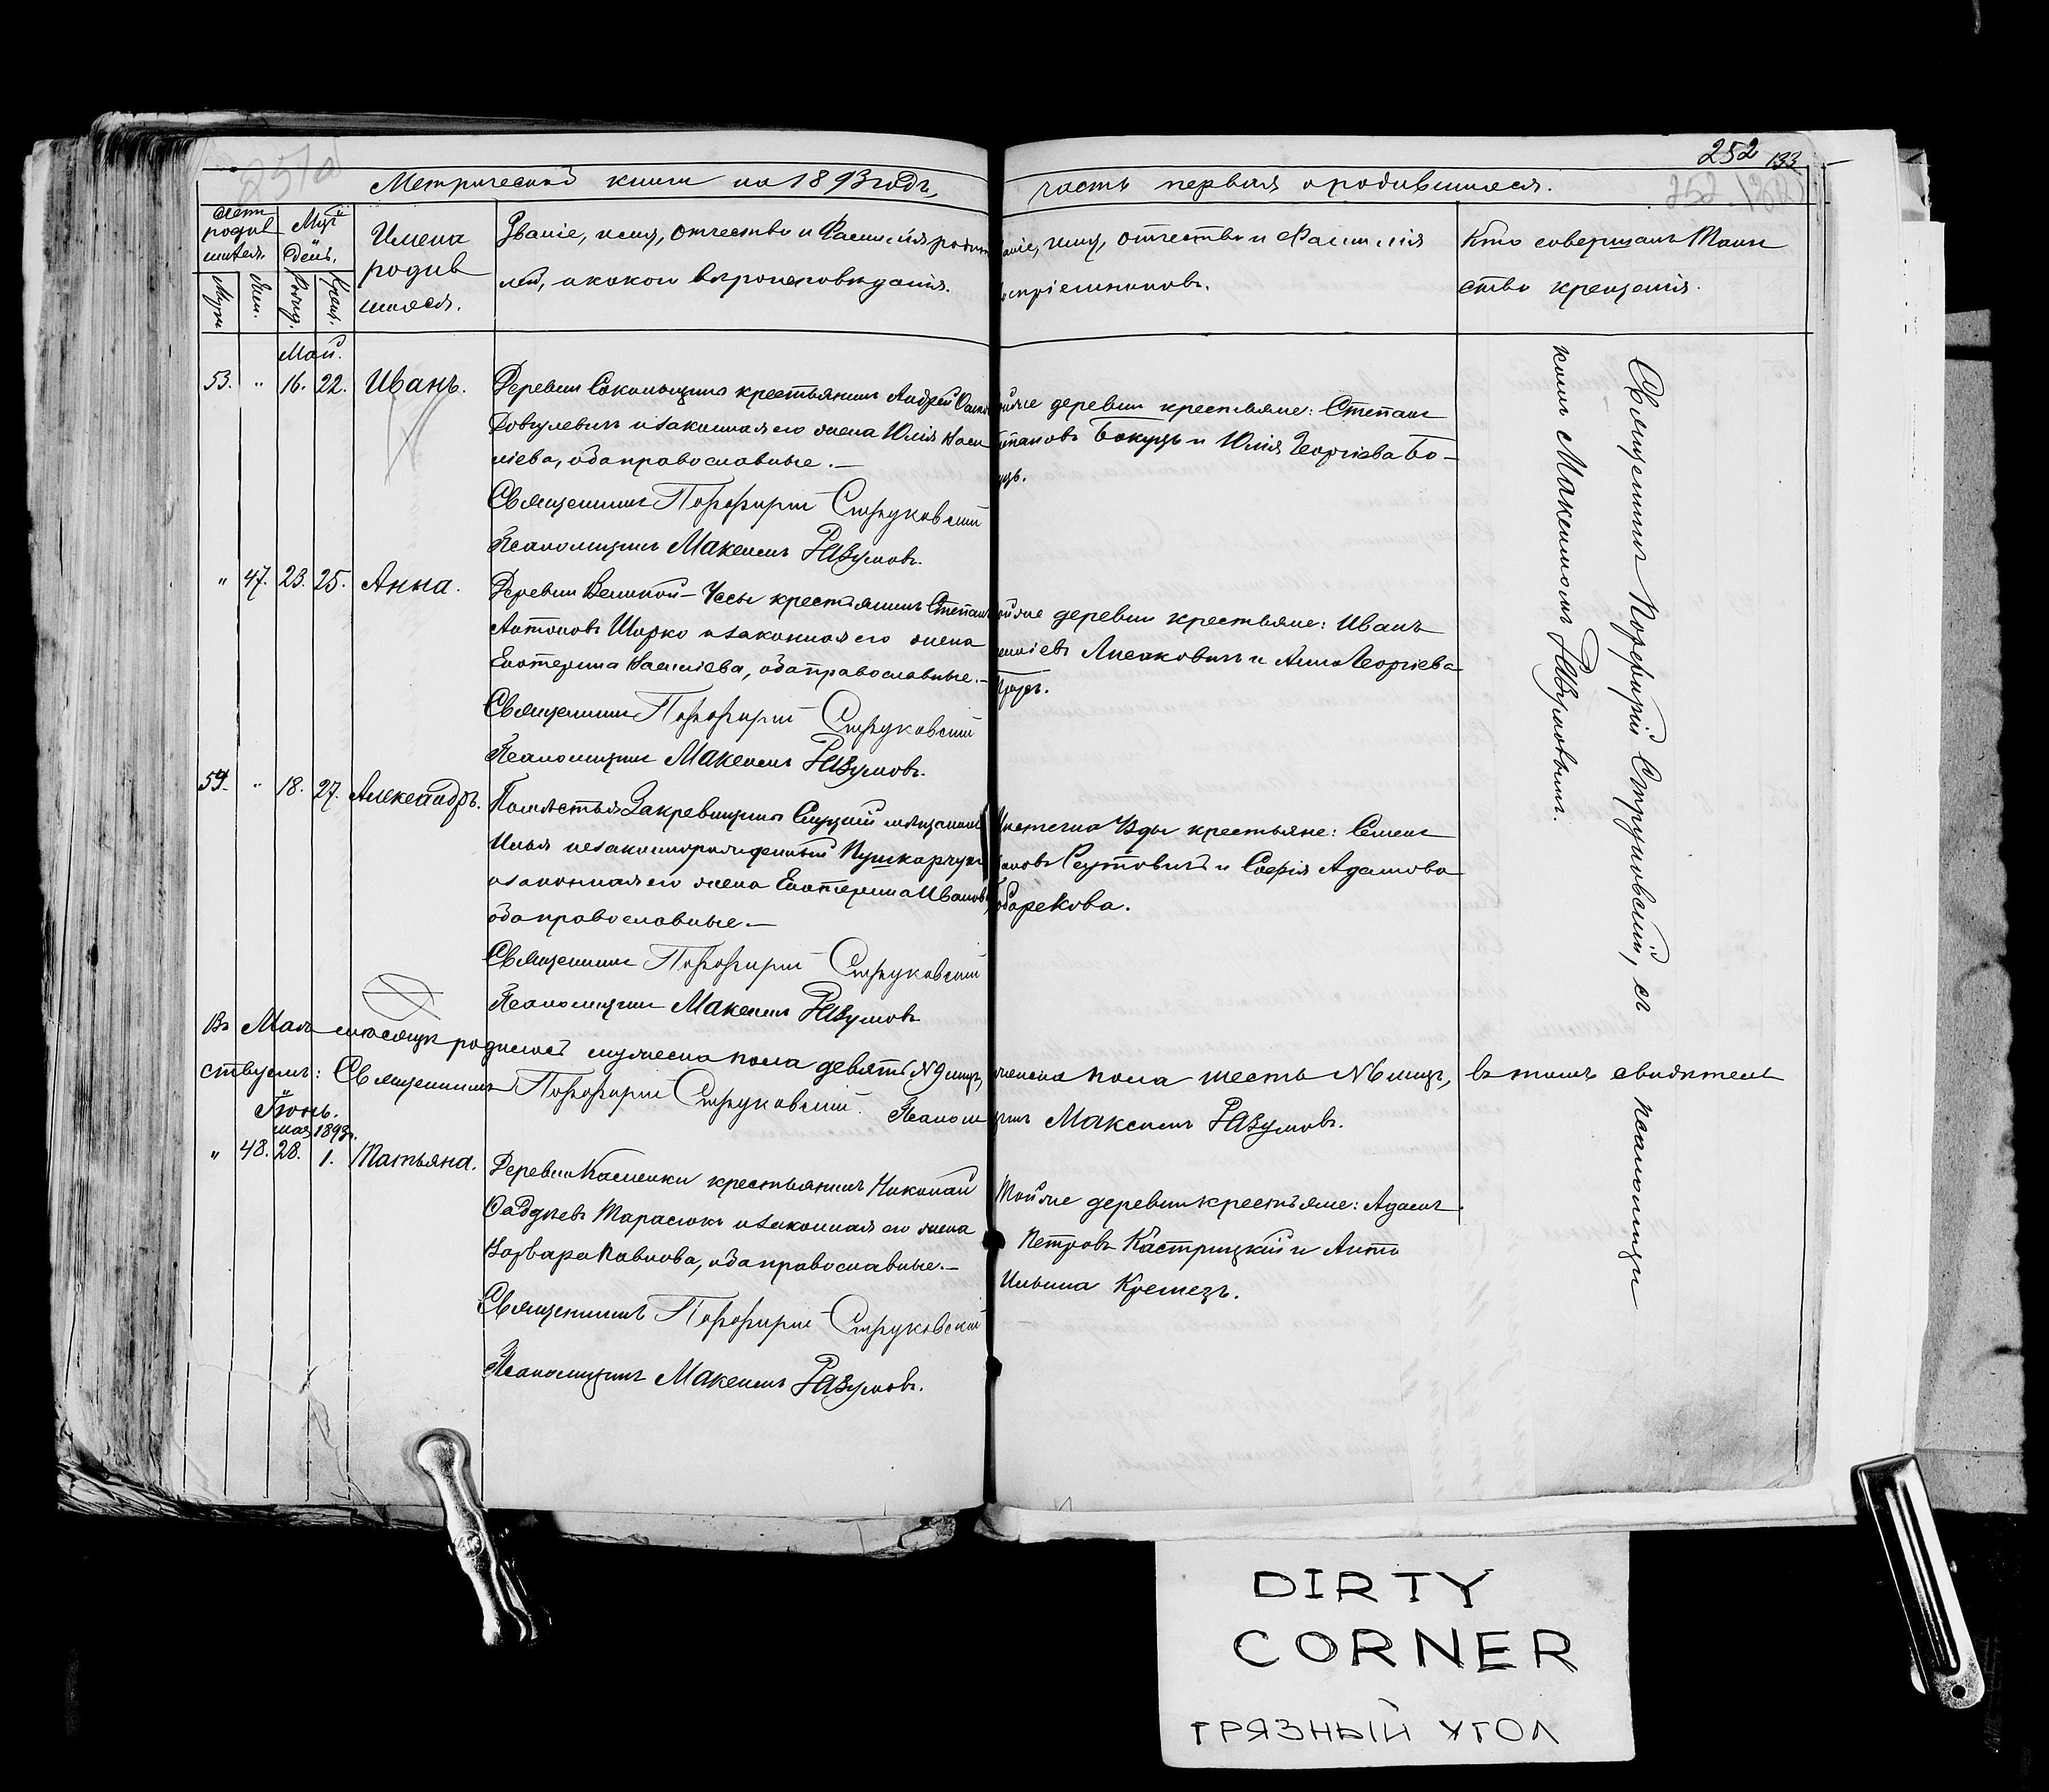 252 133
251об
252 (132)
Метрической книги на 1893 годъ, часть первая о родившихся.
Счетъ родившихся.
Мужс.
Жен.
Мцъ и день.
Рожд.
Крещ.
Имена родившихся.
Званіе, имя, отчество и фамилія родителей, и какого вѣроисповѣданія.
Званіе, имя, отчество и фамилія
воспріемниковъ.
Кто совершалъ Таин
ство крещенія.
Май.
53. " 16. 22. Иванъ.
Деревни Сокольщины крестьянинъ Андрей
Довгулевичъ и законная его жена Юлія Васи
ліева, оба православные.—
Тойже деревни крестьяне: Степанъ
Степановъ Бокуцъ и Юлія Георгіева Бо-
куцъ.
Священникъ Порфирій Струковскій
Псаломщикъ Максимъ Разумовъ.
" 47. 23. 25. Анна.
Деревни Великой-Усы крестьянинъ Степанъ
Антоновъ Шорко и законная его жена
Екатерина Василіева, оба православные.—
Тойже деревни крестьяне: Иванъ
Лисаковичъ и Анна Георгіева
Священникъ Порфирій Струковскій
Псаломщикъ Максимъ Разумовъ.
54. " 18. 27. Александръ.
Помѣстья Закревщины Слуцкій мѣщанинъ
Илья незаконнорожденный Пушкарчукъ
и законная его жена Екатерина Иванова,
оба православные.—
Мѣстечка Узды крестьяне: Семенъ
Реутовичъ и Софія Адамова
Священникъ Порфирій Струковскій
Псаломщикъ Максимъ Разумовъ
Въ Маѣ мѣсяцѣ родилось мужеска пола девять №9 лицъ, женска пола шесть №6 лицъ, въ томъ свидѣтель
ствуемъ: Священникъ Порфирій Струковскій. Псаломщикъ Максимъ Разумовъ.
Іюнь.
мая 1893г.
" 48. 28. 1. Татьяна.
Деревни Каменки крестьянинъ Николай
Ѳаддѣевъ Тарасюкъ и законная его жена
Варвара Павлова, оба православные.—
Тойже деревни крестьяне: Адамъ
Петровъ Кастрицкій и Анна
Ильина Кремезъ.
Священникъ Порфирій Струковскій
Псаломщикъ Максимъ Разумовъ.
Священникъ Порфирій Струковскій, съ псаломщи
комъ Максимомъ Разумовымъ.
DIRTY
CORNER
ГРЯЗНЫЙ УГОЛ